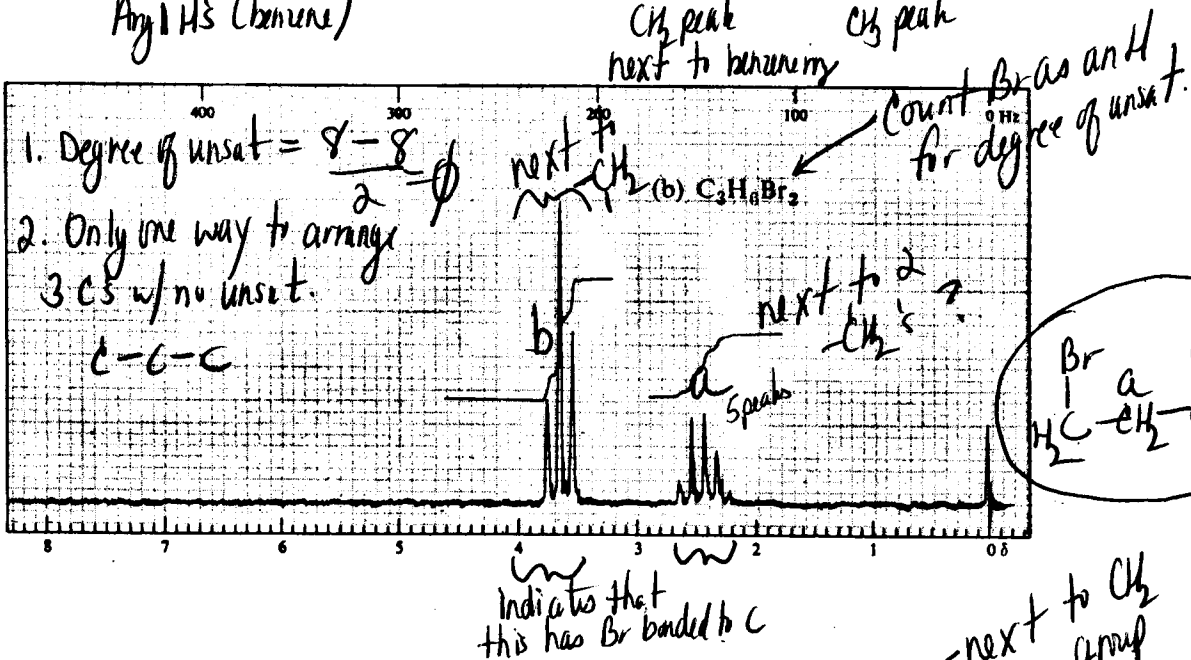 Aryl H's (benzene)
CH2 peak
next to benzene ring
CH3 peak
Count Br as an H
for degree of unsat.
400 300 200 100 0 Hz
1. Degree of unsat = 8 - 8 / 2 = ϕ
next to
CH2
(b) C3H6Br2
2. Only one way to arrange
3 C's w/ no unsat.
C-C-C
b
next to 2
-CH2's ?
a
5 peaks
Br
a
H2C-CH2-
8 7 6 5 4 3 2 1 0 δ
indicates that
this has Br bonded to C
next to CH2
group